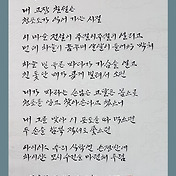 내 고장 칠월은
청포도가 익어 가는 시절
이 마을 전설이 주절이주절이 열리고
먼 데 하늘이 꿈꾸며 알알이 들어와 박혀
하늘 밑 푸른 바다가 가슴을 열고
흰 돛 단 배가 곱게 밀려서 오면
내가 바라는 손님은 고달픈 몸으로
청포를 입고 찾아온다고 했으니
내 그를 맞아 이 포도를 따 먹으면
두 손을 함뿍 적셔도 좋으련
아이야 우리 식탁엔 은쟁반에
하이얀 모시 수건을 마련해 두렴